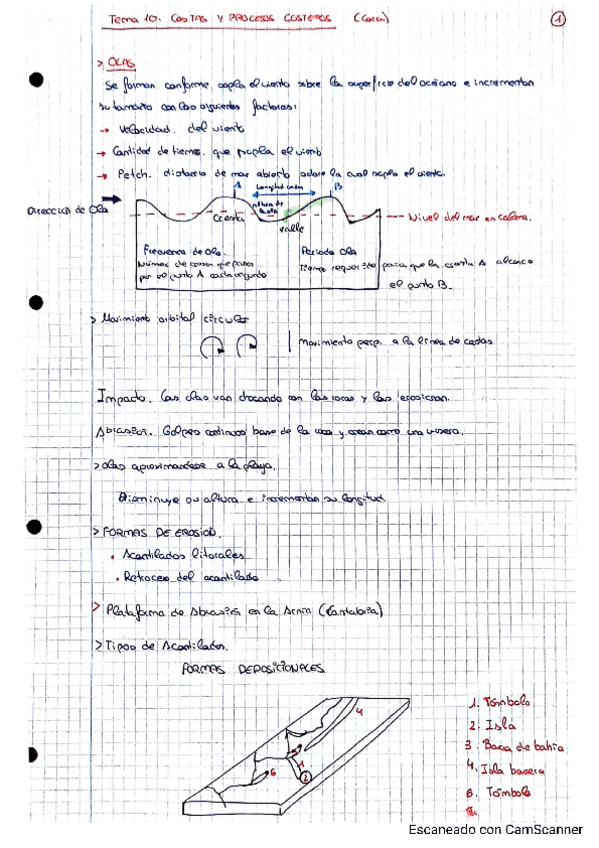 Tema 10. COSTAS Y PROCESOS COSTEROS
1
> OLAS
Se forman conforme sopla el viento sobre la superficie del océano e incrementan
su tamaño con los siguientes factores:
→ Velocidad del viento
→ Cantidad de tiempo que sopla el viento
→ Fetch. distancia de mar abierto sobre la cual sopla el viento.
A
Longitud onda
B
Dirección de Ola
altura de
Cresta
valle
Nivel del mar en calma.
Frecuencia de Ola.
Número de crestas que pasan
por el punto A cada segundo
Periodo Ola
Tiempo requerido para que la cresta A alcance
el punto B.
> Movimiento orbital circular
Movimiento perp. a la linea de costas
Impacto. Las olas van chocando con las rocas y las erosionan.
Abrasión. Golpeo continuo base de la roca y crean como una visera.
> olas aproximandose a la playa.
Disminuye su altura e incrementan su longitud.
> FORMAS DE EROSIÓN.
• Acantilados litorales
• Retroceso del acantilado
> Plataforma de Abrasión en la Arnia (Cantabria)
> Tipos de Acantilados.
FORMAS DEPOSICIONALES
4
1
2
6
1. Tómbolo
2. Isla
3. Barra de bahia
4. Isla barrera
6. Tómbolo
Escaneado con CamScanner